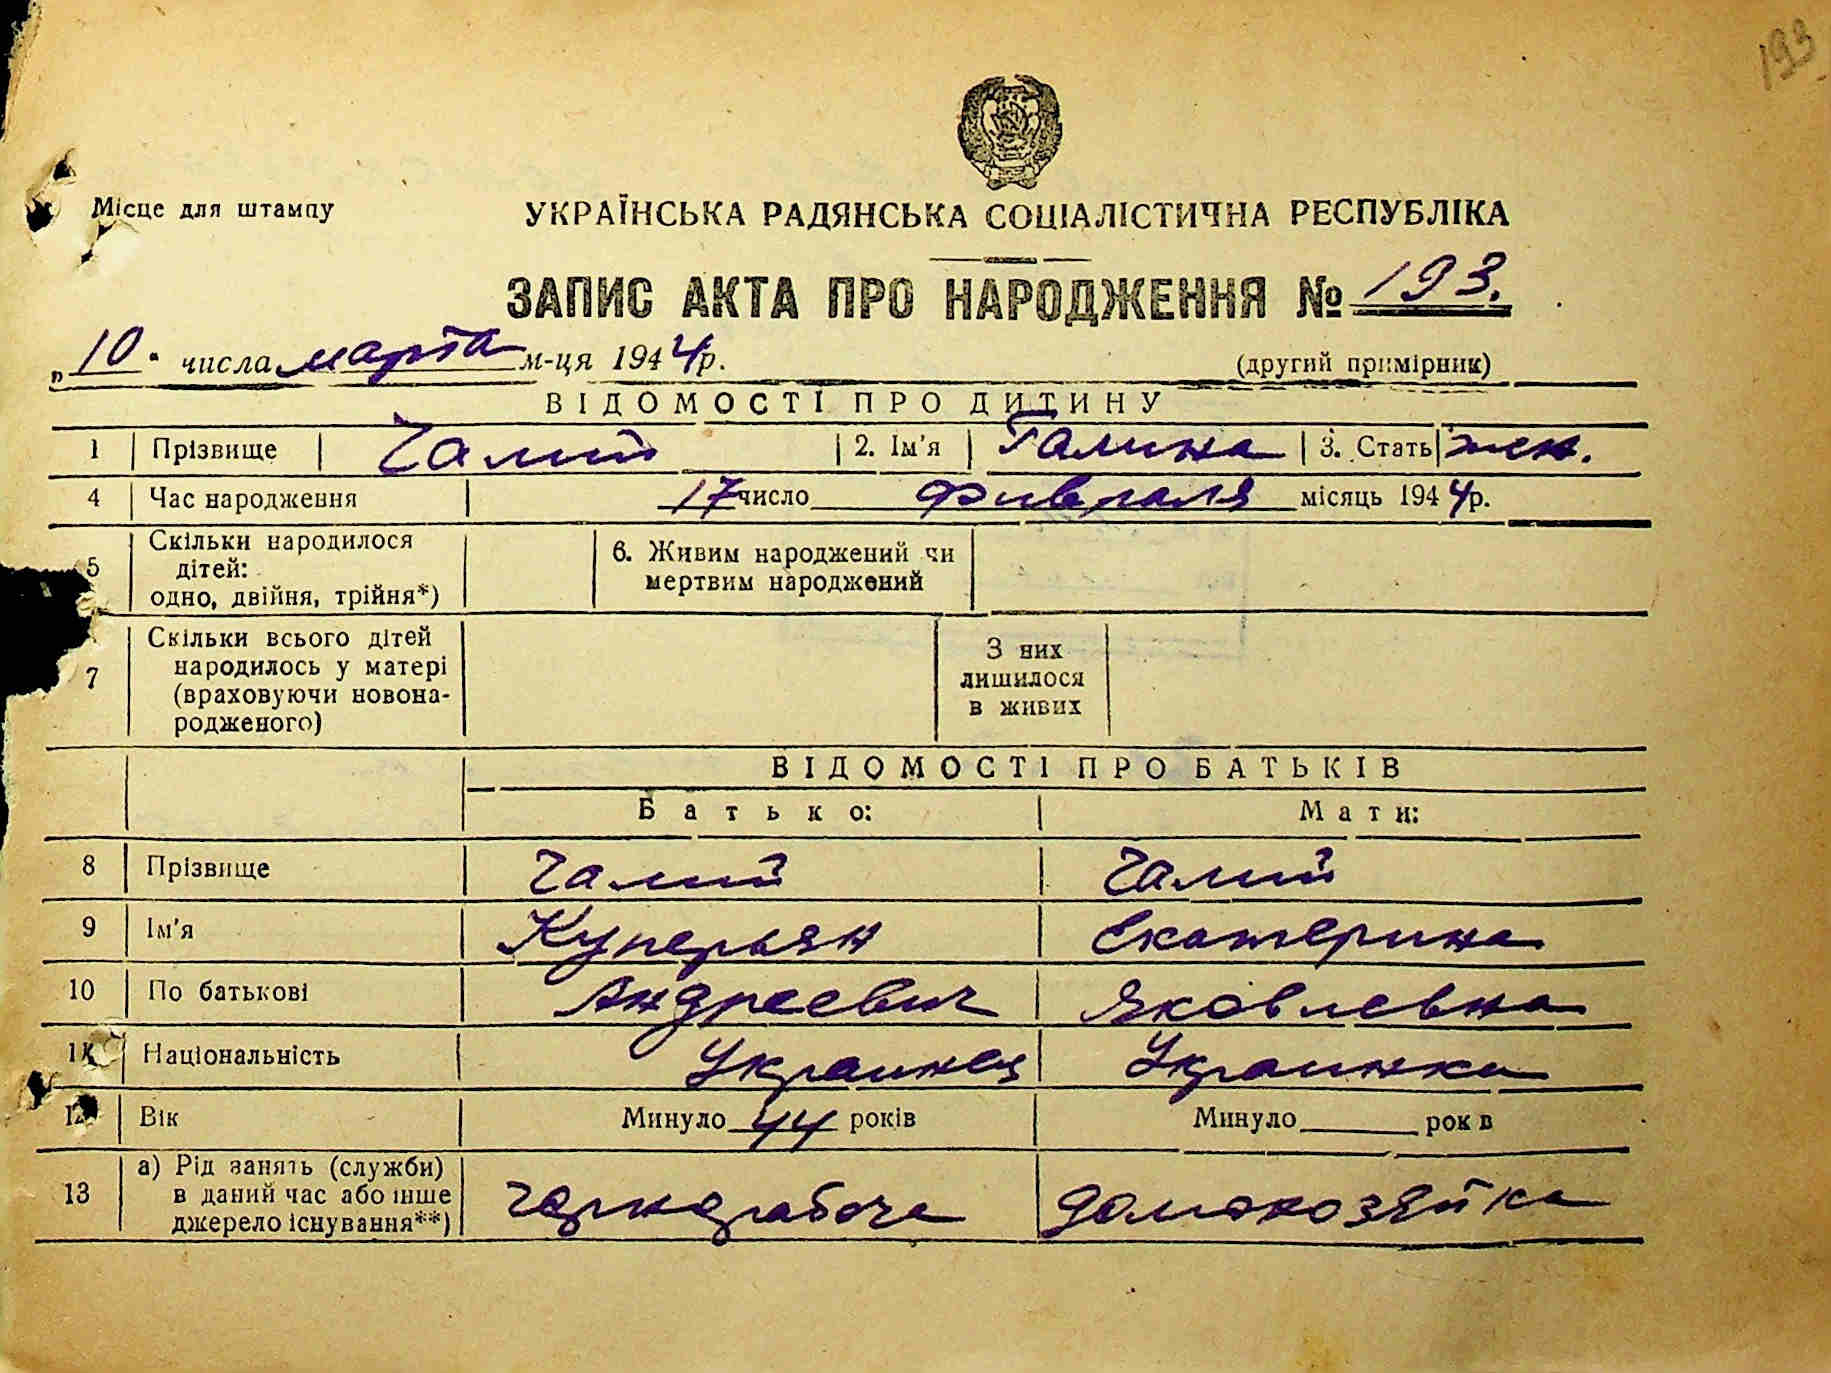 193
Місце для штампу
УКРАЇНСЬКА РАДЯНСЬКА СОЦІАЛІСТИЧНА РЕСПУБЛІКА
ЗАПИС АКТА ПРО НАРОДЖЕННЯ № 193.
„10" числа марта м-ця 1944р.
(другий примірник)
ВІДОМОСТІ ПРО ДИТИНУ
1 Прізвище Чалий 2. Ім'я Галина 3. Стать жен.
4 Час народження 17 число Фивраля місяць 1944р.
5 Скільки народилося
дітей:
одно, двійня, трійня*)
6. Живим народжений чи
мертвим народжений
7 Скільки всього дітей
народилось у матері
(враховуючи новона-
родженого)
З них
лишилося
в живих
ВІДОМОСТІ ПРО БАТЬКІВ
Батько: Мати:
8 Прізвище Чалий Чалий
9 Ім'я Куперьян Екатерина
10 По батькові Андреевич Яковлевна
11 Національність Украинец Украинка
12 Вік Минуло 44 років Минуло рок в
13 а) Рід занять (служби)
в даний час або інше
джерело існування**)
домохозяйка